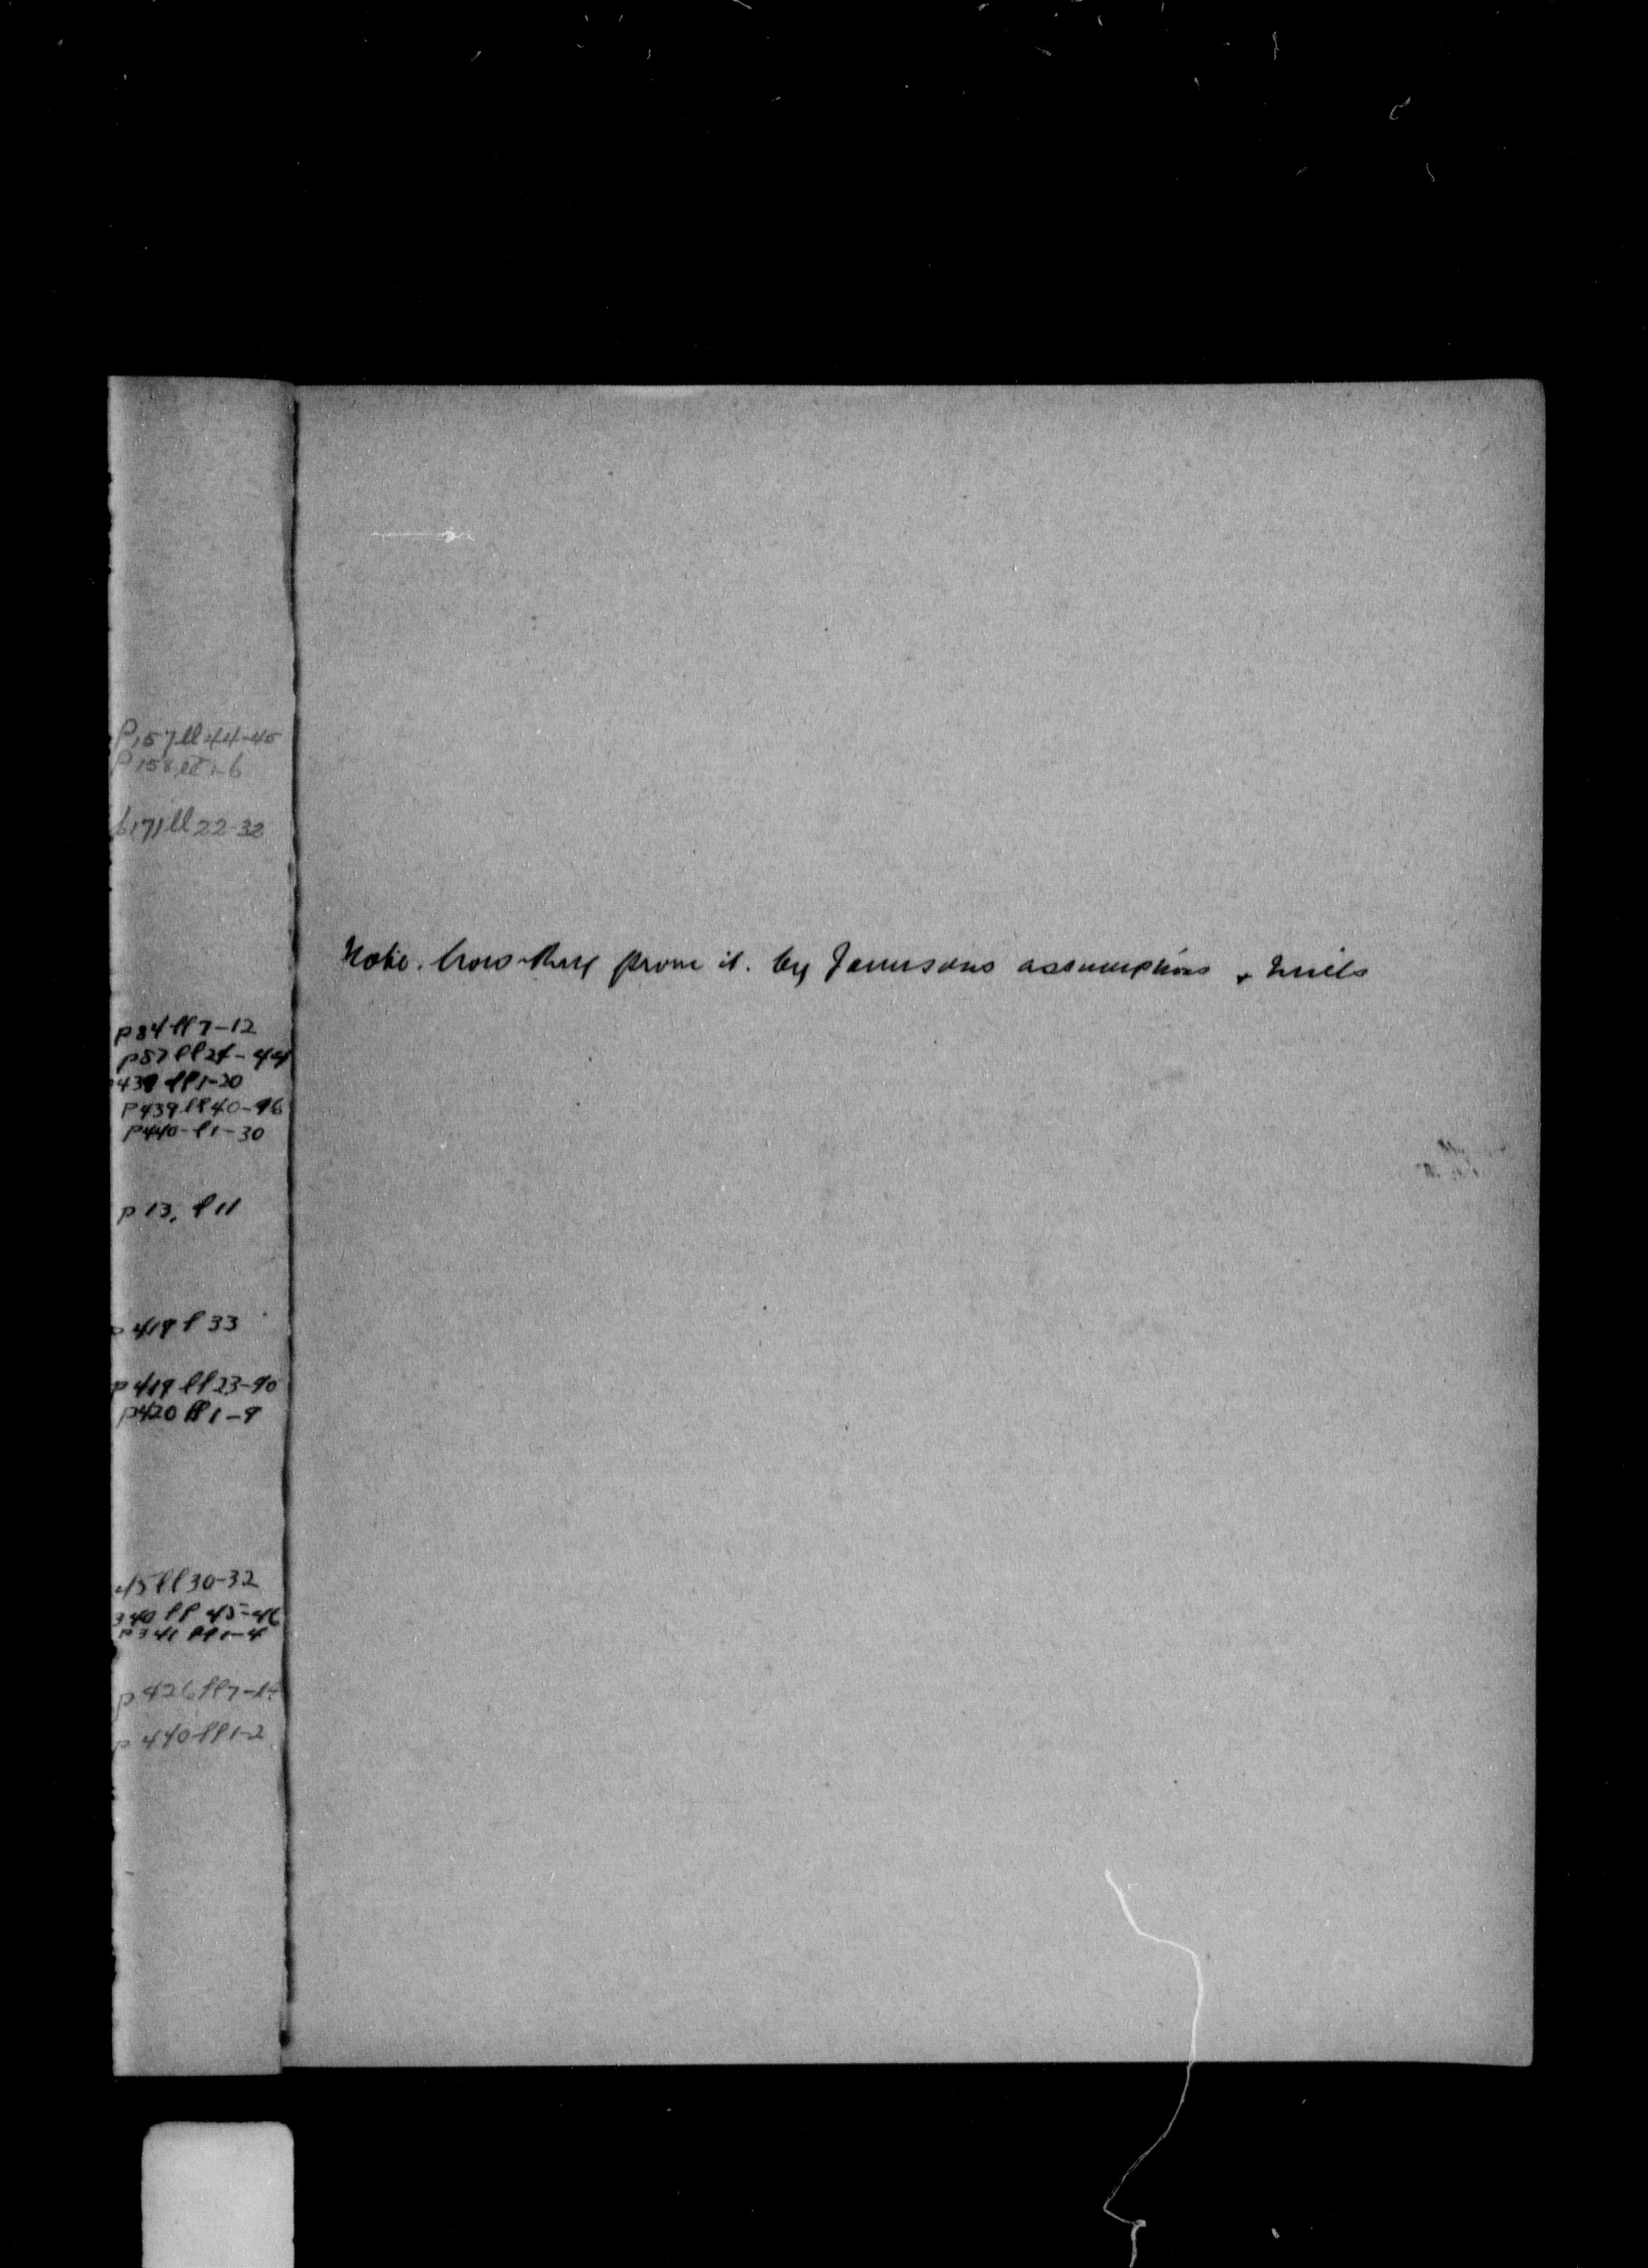 P157 ll 44-45
P158 ll 1-6
p171 ll 22-32
Note. how they prove it. by Jamesons assumptions &
p84 ll 7-12
p57 ll 24-44
439 ll 1-20
P439 ll 40-46
p440 l 1-30
p 13, l 11
p 419 l 33
p 419 ll 23-40
p420 ll 1-9
45 ll 30-32
340 ll 45-46
p341 ll 1-4
p 426 ll 7-14
p 440 ll 1-2